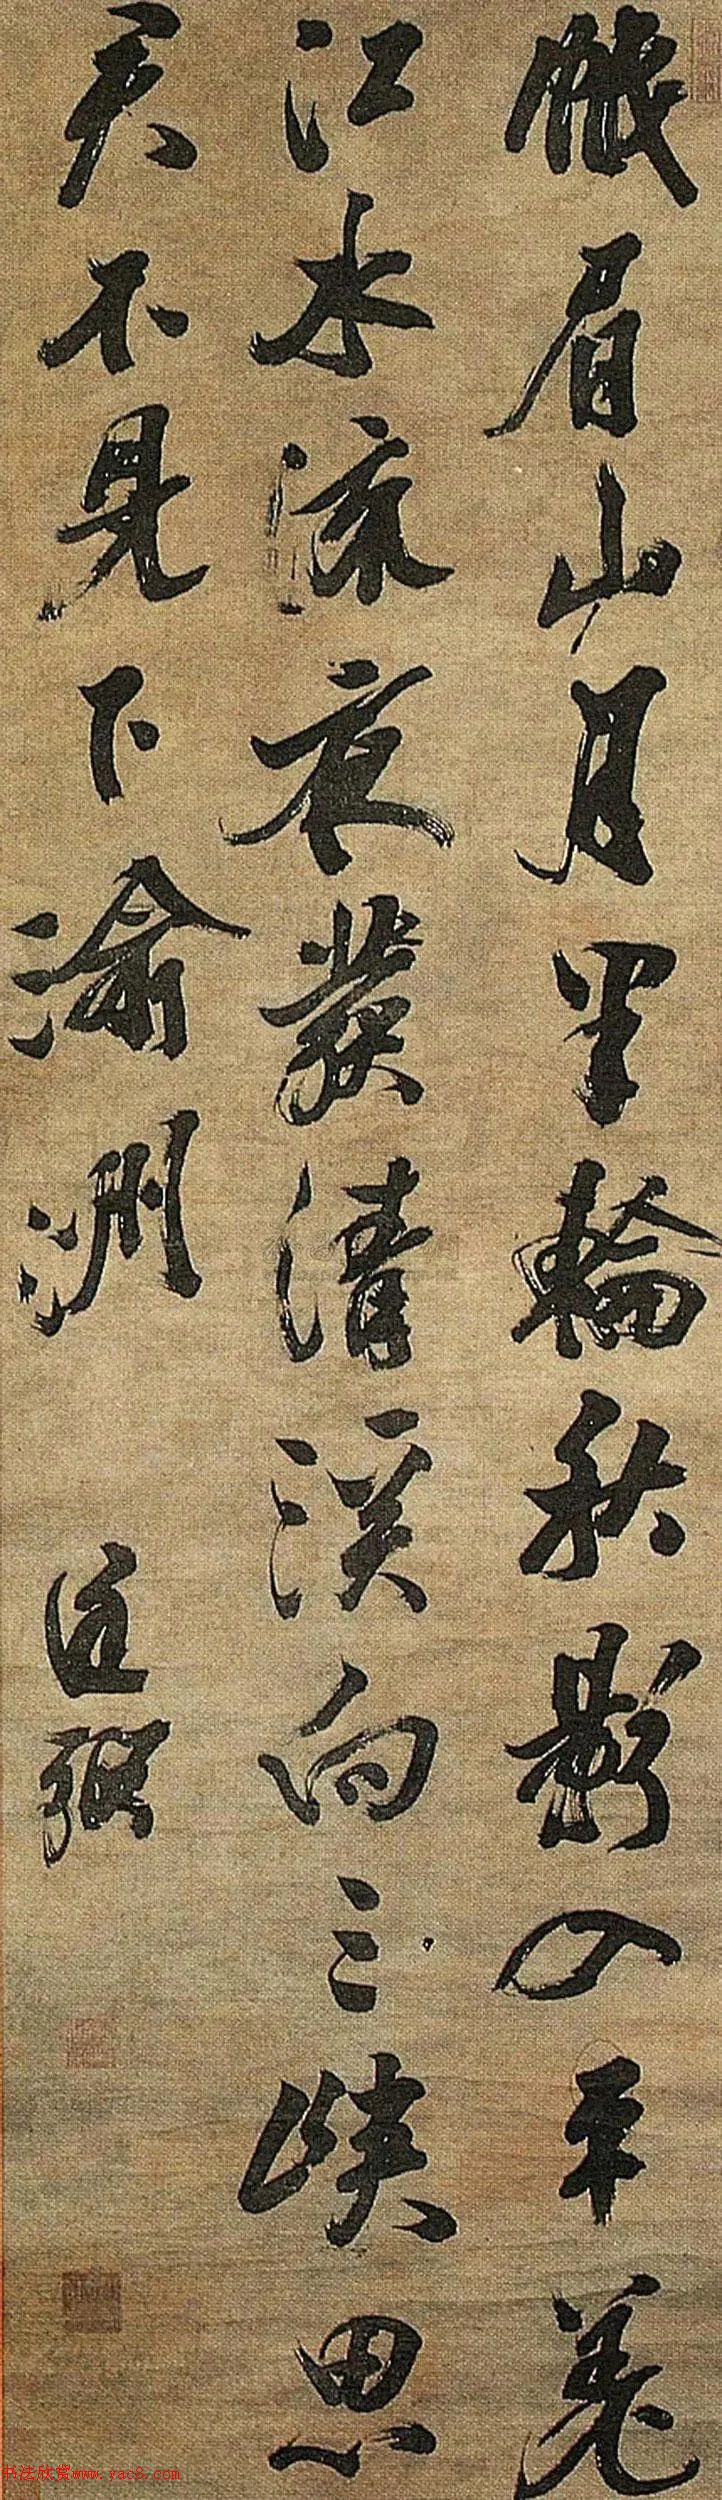 峨眉山月半輪秋影入平羌
江水流夜發清溪向三峽思
君不見下渝洲 廷弼
书法欣赏www.yac8.com